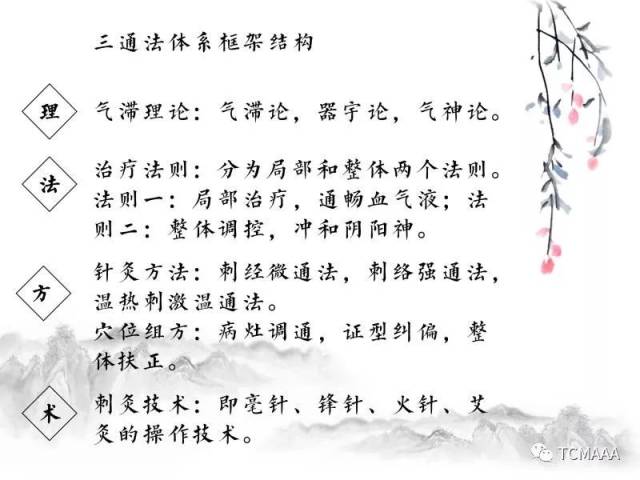 三通法体系框架结构
理
气滞理论：气滞论，器宇论，气神论。
法
治疗法则：分为局部和整体两个法则。
法则一：局部治疗，通畅血气液；法
则二：整体调控，冲和阴阳神。
方
针灸方法：刺经微通法，刺络强通法，
温热刺激温通法。
穴位组方：病灶调通，证型纠偏，整
体扶正。
术
刺灸技术：即毫针、锋针、火针、艾
灸的操作技术。
TCMAAA